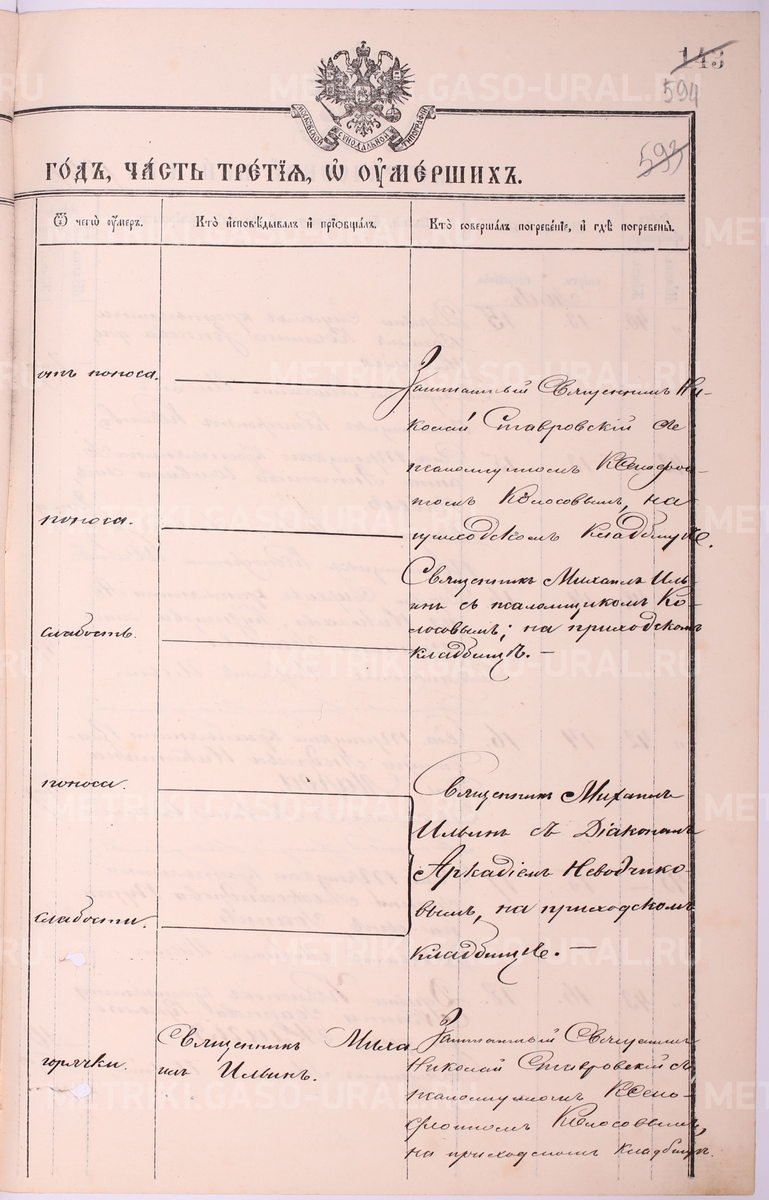 143
594
593
МОСКОВСКОЙ СѴНОДАЛЬНОЙ ТИПОГРАФІИ
ГО́ДЪ, ЧА́СТЬ ТРЕ́ТІѦ, Ѡ҆ ОУ҆МЕ́РШИХЪ.
Ѿ чегѡ̀ оу҆́меръ.
Кто̀ и҆сповѣ́дывалъ и҆ прїѡбща́лъ.
Кто̀ соверша́лъ погребе́нїе, и҆ гдѣ̀ погребены̀.
отъ поноса.
Заштатный Священникъ Ни-
колай Ставровскій съ
псаломщикомъ Ксенофон-
томъ Колосовымъ, на
приходскомъ кладбищѣ.
поноса.
Священникъ Михаилъ Иль-
инъ съ псаломщикомъ Ко-
лосовымъ; на приходскомъ
кладбищѣ. —
слабость.
поноса.
Священникъ Михаилъ
Ильинъ съ Діакономъ
Аркадіемъ Неводчико-
вымъ, на приходскомъ
кладбищѣ. —
слабости.
горячки.
Священникъ Миха
илъ Ильинъ.
Заштатный Священникъ
Николай Ставровскій съ
псаломщикомъ Ксено-
фонтомъ Колосовымъ,
на приходскомъ кладбищѣ.
METRIKI.GASO-URAL.RU